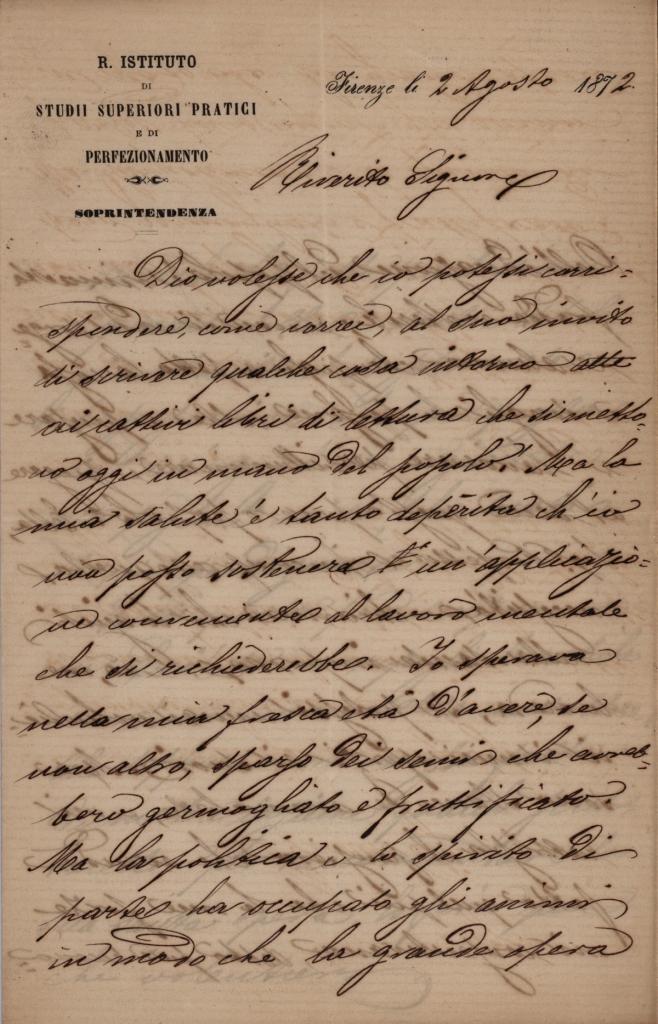 R. ISTITUTO
DI
STUDII SUPERIORI PRATICI
E DI
PERFEZIONAMENTO
SOPRINTENDENZA
Firenze li 2 Agosto 1872.
Riverito Signore
Dio volesse che io potessi corri=
spondere, come vorrei, al suo invito
di scrivere qualche cosa intorno
ai cattivi libri di lettura che si metto=
no oggi in mano del popolo! Ma la
mia salute è tanto deperita ch'io
non posso sostenere un'applicazio=
ne conveniente al lavoro mentale
che si richiederebbe. Io sperava
nella mia fresca età d'avere, se
non altro, sparso dei semi che avreb=
bero germogliato e fruttificato.
Ma la politica e lo spirito di
parte ha occupato gli animi
in modo che la grande opera